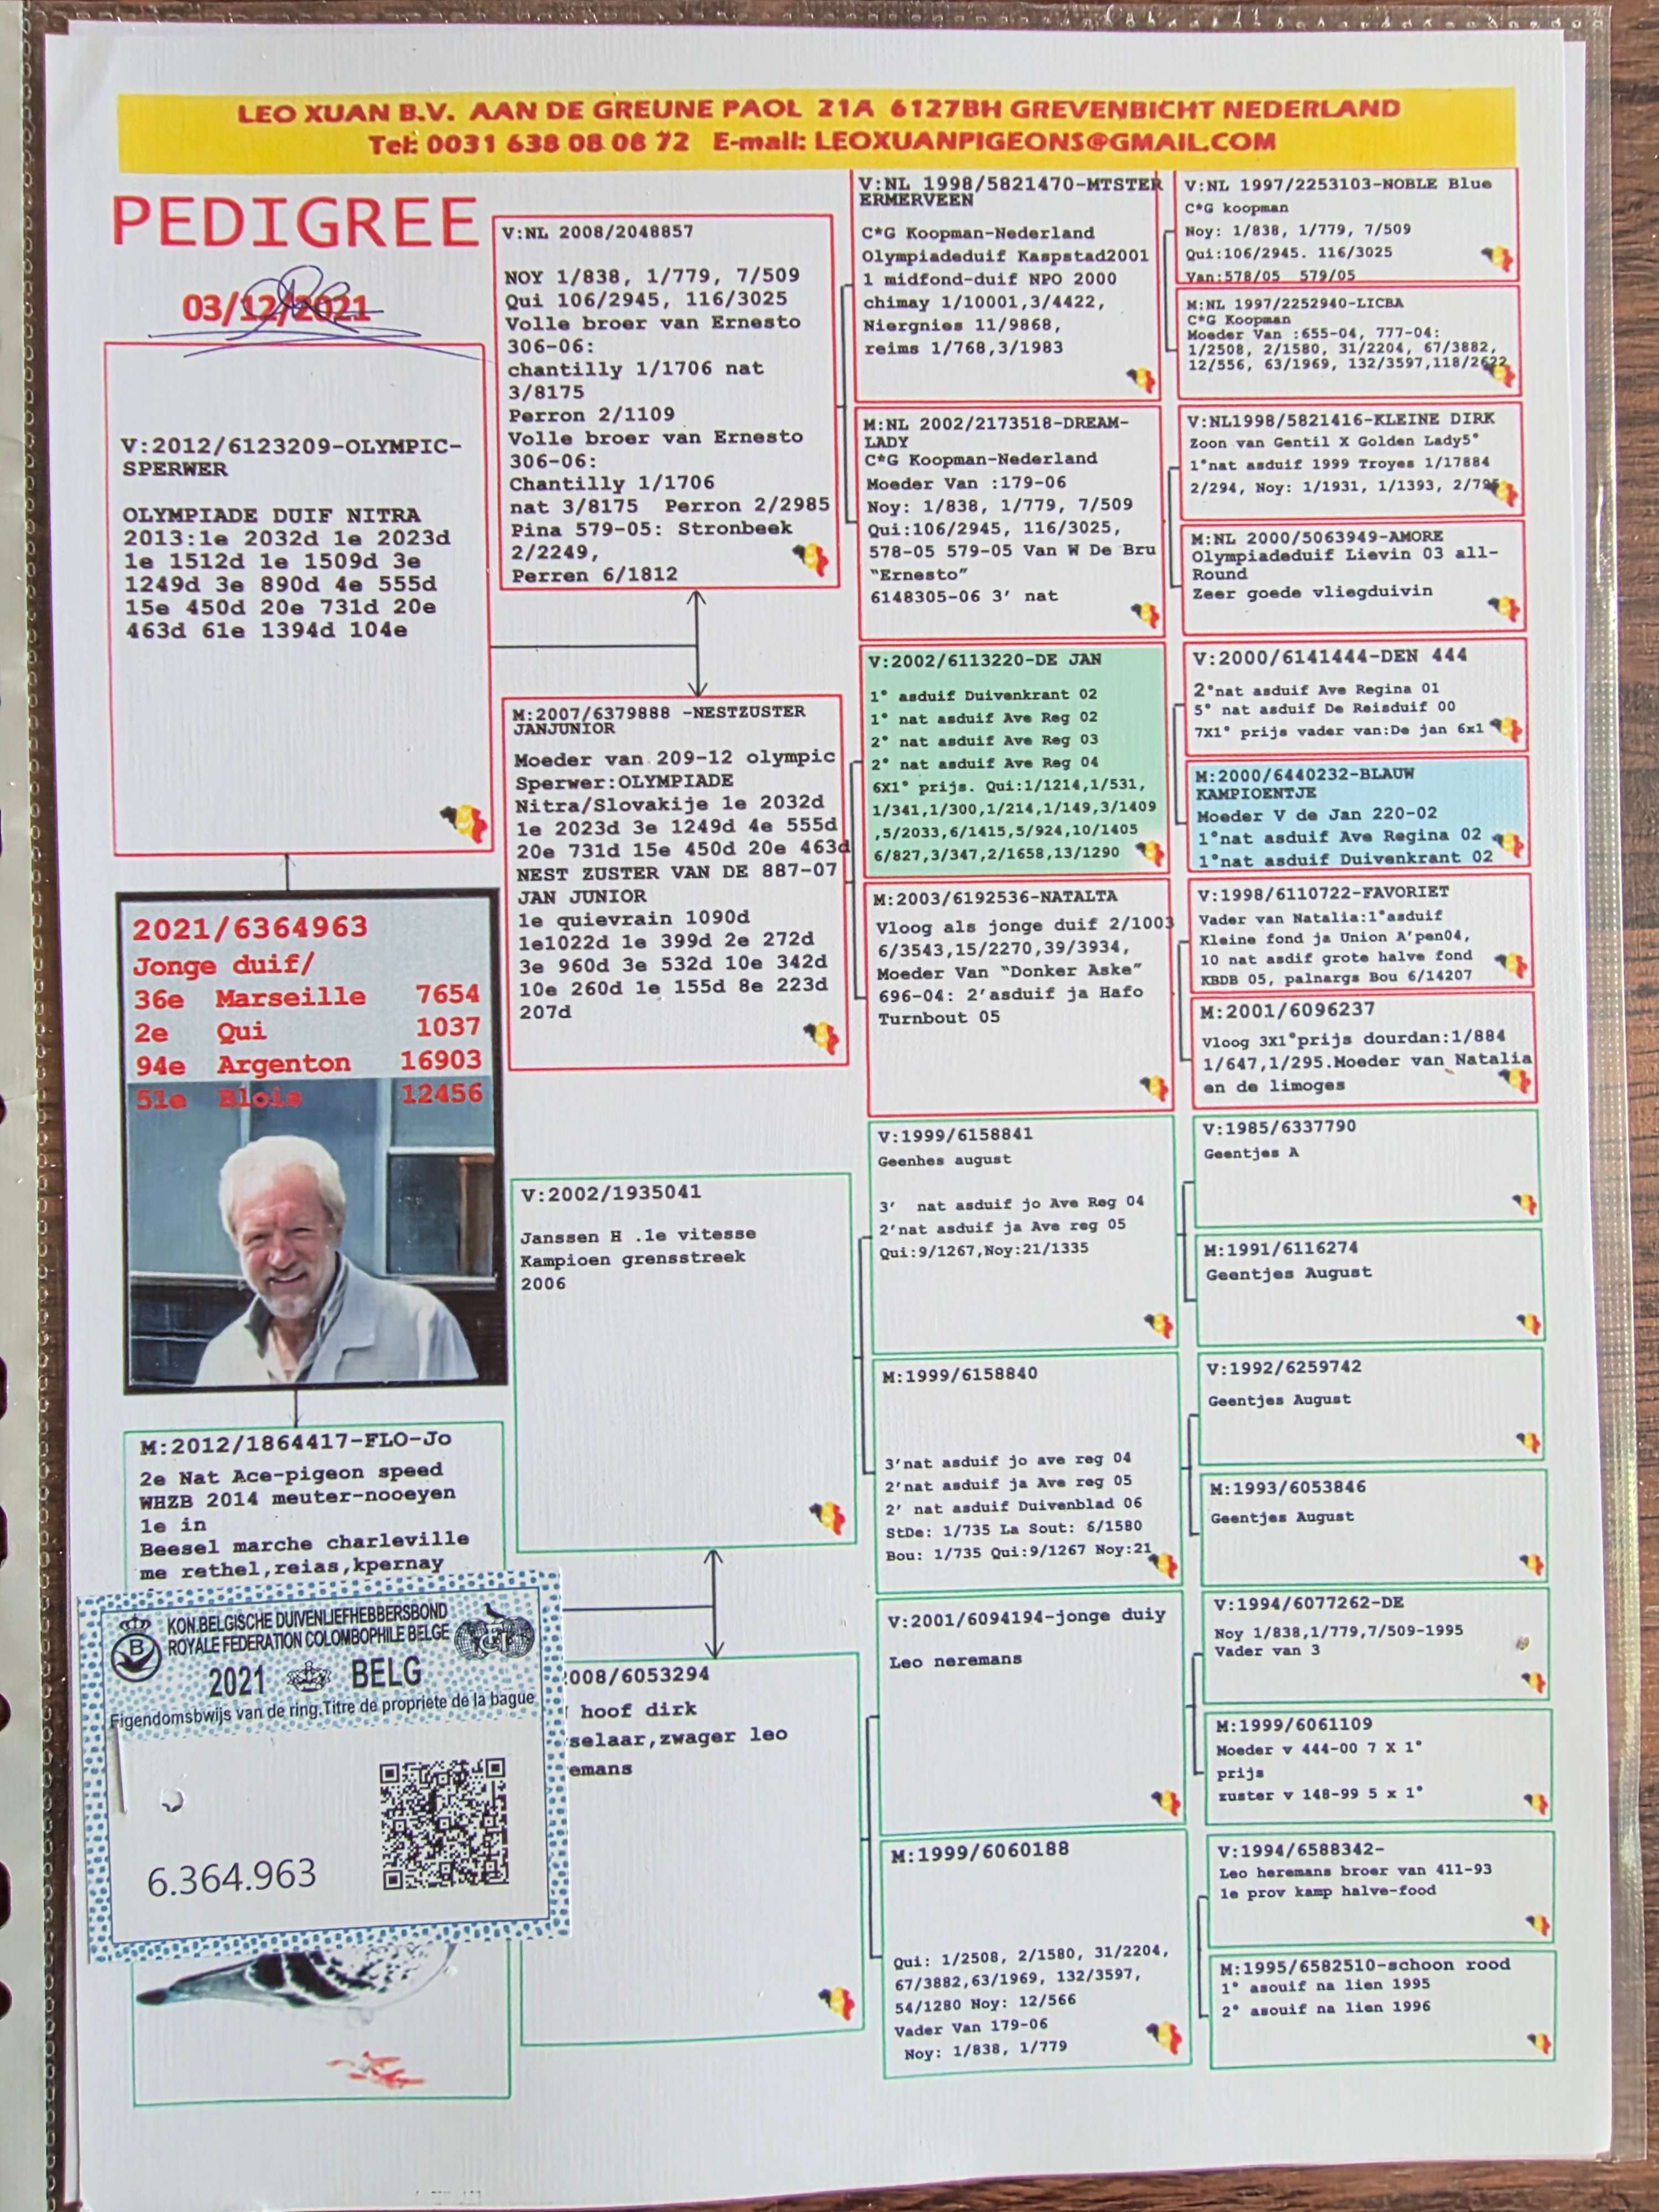 LEO XUAN B.V. AAN DE GREUNE PAOL 21A 6127BH GREVENBICHT NEDERLAND
Tel: 0031 638 08 08 72 E-mail: LEOXUANPIGEONS@GMAIL.COM
PEDIGREE
03/12/2021
V:2012/6123209-OLYMPIC-
SPERWER
OLYMPIADE DUIF NITRA
2013:1e 2032d 1e 2023d
1e 1512d 1e 1509d 3e
1249d 3e 890d 4e 555d
15e 450d 20e 731d 20e
463d 61e 1394d 104e
2021/6364963
Jonge duif/
36e Marseille 7654
2e Qui 1037
94e Argenton 16903
51e Blois 12456
M:2012/1864417-FLO-Jo
2e Nat Ace-pigeon speed
WHZB 2014 meuter-nooeyen
1e in
Beesel marche charleville
me rethel,reias,kpernay
KON.BELGISCHE DUIVENLIEFHEBBERSBOND
ROYALE FEDERATION COLOMBOPHILE BELGE
B
2021 BELG
Figendomsbwijs van de ring.Titre de propriete de la bague
6.364.963
V:NL 2008/2048857
NOY 1/838, 1/779, 7/509
Qui 106/2945, 116/3025
Volle broer van Ernesto
306-06:
chantilly 1/1706 nat
3/8175
Perron 2/1109
Volle broer van Ernesto
306-06:
Chantilly 1/1706
nat 3/8175 Perron 2/2985
Pina 579-05: Stronbeek
2/2249,
Perren 6/1812
M:2007/6379888 -NESTZUSTER
JANJUNIOR
Moeder van 209-12 olympic
Sperwer:OLYMPIADE
Nitra/Slovakije 1e 2032d
1e 2023d 3e 1249d 4e 555d
20e 731d 15e 450d 20e 463d
NEST ZUSTER VAN DE 887-07
JAN JUNIOR
1e quievrain 1090d
1e1022d 1e 399d 2e 272d
3e 960d 3e 532d 10e 342d
10e 260d 1e 155d 8e 223d
207d
V:2002/1935041
Janssen H .1e vitesse
Kampioen grensstreek
2006
008/6053294
hoof dirk
selaar,zwager leo
emans
V:NL 1998/5821470-MTSTER
ERMERVEEN
C*G Koopman-Nederland
Olympiadeduif Kaspstad2001
1 midfond-duif NPO 2000
chimay 1/10001,3/4422,
Niergnies 11/9868,
reims 1/768,3/1983
M:NL 2002/2173518-DREAM-
LADY
C*G Koopman-Nederland
Moeder Van :179-06
Noy: 1/838, 1/779, 7/509
Qui:106/2945, 116/3025,
578-05 579-05 Van W De Bru
"Ernesto"
6148305-06 3' nat
V:2002/6113220-DE JAN
1° asduif Duivenkrant 02
1° nat asduif Ave Reg 02
2° nat asduif Ave Reg 03
2° nat asduif Ave Reg 04
6X1° prijs. Qui:1/1214,1/531,
1/341,1/300,1/214,1/149,3/1409
,5/2033,6/1415,5/924,10/1405
6/827,3/347,2/1658,13/1290
M:2003/6192536-NATALTA
Vloog als jonge duif 2/1003
6/3543,15/2270,39/3934,
Moeder Van "Donker Aske"
696-04: 2'asduif ja Hafo
Turnbout 05
V:1999/6158841
Geenhes august
3' nat asduif jo Ave Reg 04
2'nat asduif ja Ave reg 05
Qui:9/1267,Noy:21/1335
M:1999/6158840
3'nat asduif jo ave reg 04
2'nat asduif ja Ave reg 05
2' nat asduif Duivenblad 06
StDe: 1/735 La Sout: 6/1580
Bou: 1/735 Qui:9/1267 Noy:21
V:2001/6094194-jonge duiy
Leo neremans
M:1999/6060188
Qui: 1/2508, 2/1580, 31/2204,
67/3882,63/1969, 132/3597,
54/1280 Noy: 12/566
Vader Van 179-06
Noy: 1/838, 1/779
V:NL 1997/2253103-NOBLE Blue
C*G koopman
Noy: 1/838, 1/779, 7/509
Qui:106/2945. 116/3025
Van:578/05 579/05
M:NL 1997/2252940-LICBA
C*G Koopman
Moeder Van :655-04, 777-04:
1/2508, 2/1580, 31/2204, 67/3882,
12/556, 63/1969, 132/3597,118/2622
V:NL1998/5821416-KLEINE DIRK
Zoon van Gentil X Golden Lady5°
1°nat asduif 1999 Troyes 1/17884
2/294, Noy: 1/1931, 1/1393, 2/795
M:NL 2000/5063949-AMORE
Olympiadeduif Lievin 03 all-
Round
Zeer goede vliegduivin
V:2000/6141444-DEN 444
2°nat asduif Ave Regina 01
5° nat asduif De Reisduif 00
7X1° prijs vader van:De jan 6x1
M:2000/6440232-BLAUW
KAMPIOENTJE
Moeder V de Jan 220-02
1°nat asduif Ave Regina 02
1°nat asduif Duivenkrant 02
V:1998/6110722-FAVORIET
Vader van Natalia:1°asduif
Kleine fond ja Union A'pen04,
10 nat asdif grote halve fond
KBDB 05, palnargs Bou 6/14207
M:2001/6096237
Vloog 3X1°prijs dourdan:1/884
1/647,1/295.Moeder van Natalia
en de limoges
V:1985/6337790
Geentjes A
M:1991/6116274
Geentjes August
V:1992/6259742
Geentjes August
M:1993/6053846
Geentjes August
V:1994/6077262-DE
Noy 1/838,1/779,7/509-1995
Vader van 3
M:1999/6061109
Moeder v 444-00 7 X 1°
prijs
zuster v 148-99 5 x 1°
V:1994/6588342-
Leo heremans broer van 411-93
1e prov kamp halve-food
M:1995/6582510-schoon rood
1° asouif na lien 1995
2° asouif na lien 1996